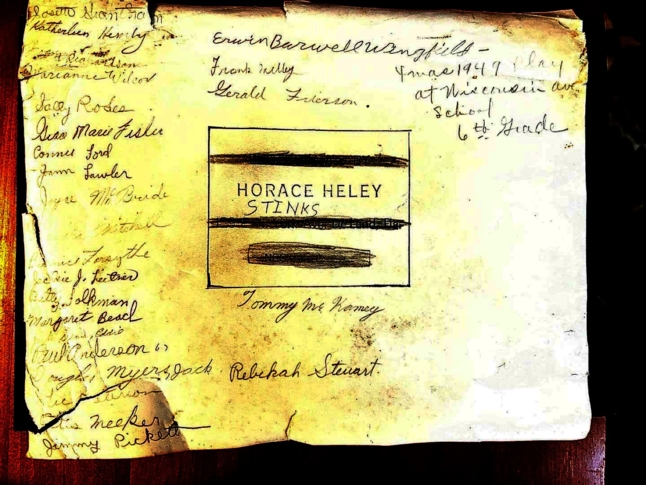 Katherleen Hemby
Marianne Wilcox
Sally Roses
Gina Marie Fisher
Connie Ford
Jann Lawler
Joyce McBride
Mitchell
Forsythe
Jackie J. Leitner
Betty Folkman
Margaret Beach
Paul Anderson
Myers Jack
Otis Meeker
Jimmy Pickett
Erwin Barwell Wingfield -
Frank Kelly
Gerald Frierson.
Xmas 1947 Play
at Wisconsin ave
School
6th Grade
HORACE HELEY
STINKS
Tommy McKamey
Rebekah Stewart.